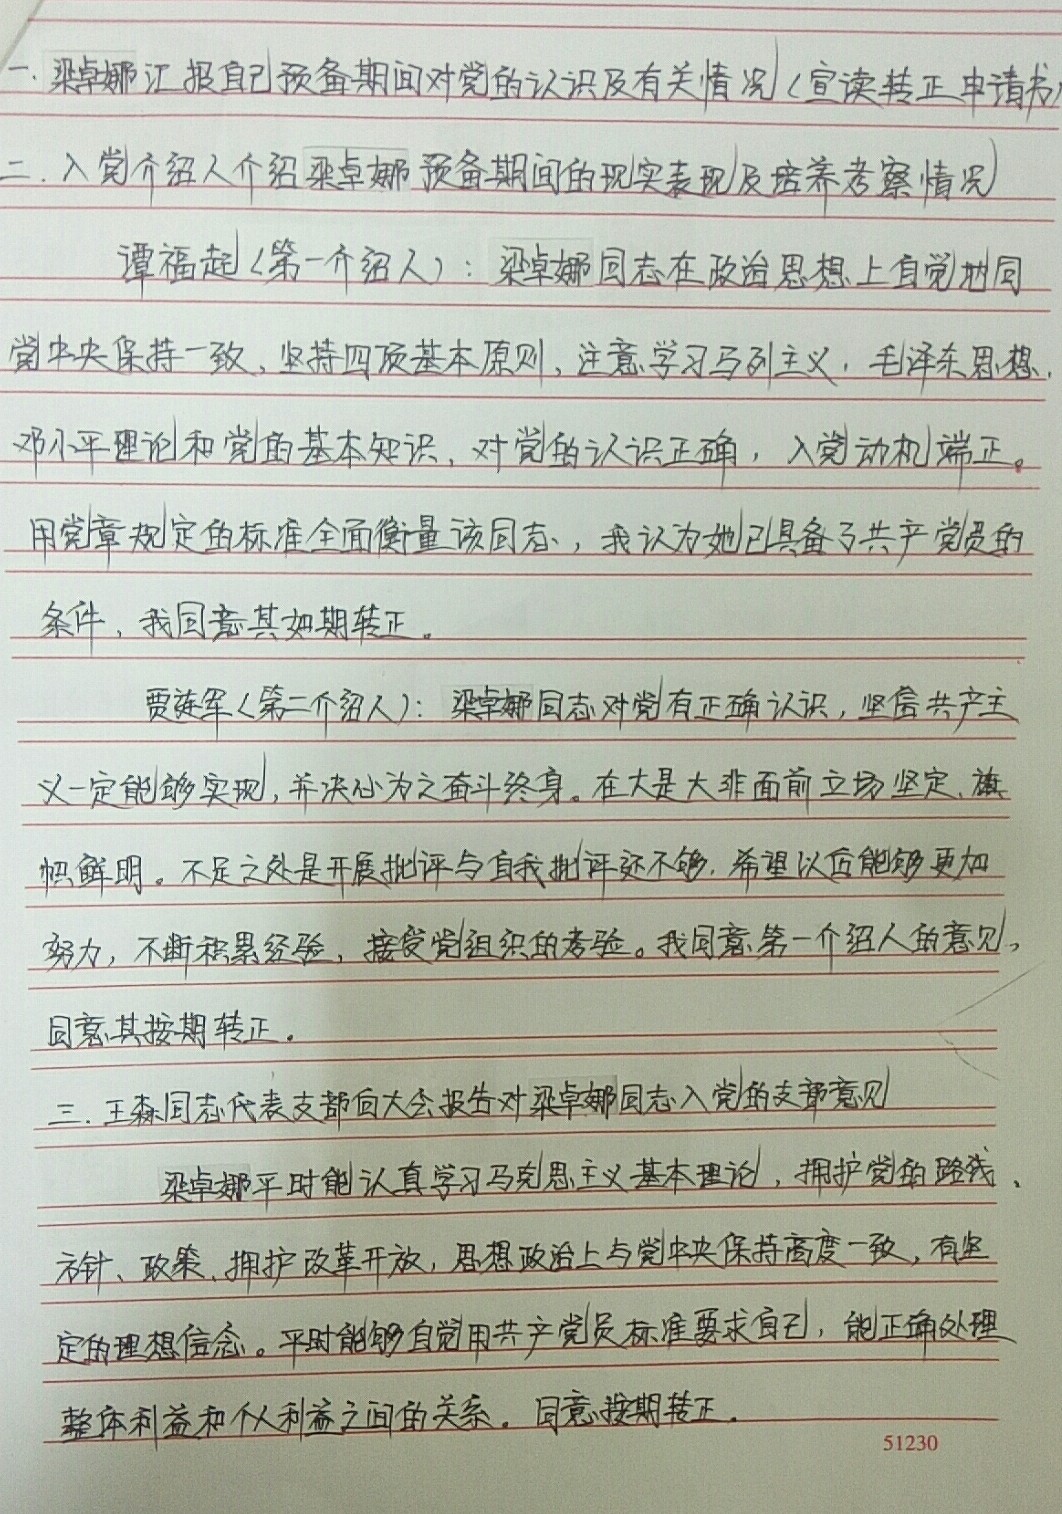 一.梁卓娜汇报自己预备期间对党的认识及有关情况(宣读转正申请书)
二.入党介绍人介绍梁卓娜预备期间的现实表现及培养考察情况
谭福起(第一介绍人):梁卓娜同志在政治思想上自觉地同
党中央保持一致、坚持四项基本原则,注意学习马列主义,毛泽东思想,
邓小平理论和党的基本知识,对党的认识正确,入党动机端正。
用党章规定的标准全面衡量该同志,我认为她已具备了共产党员的
条件,我同意其如期转正。
贾延军(第二介绍人):梁卓娜同志对党有正确认识,坚信共产主
义一定能够实现,并决心为之奋斗终身。在大是大非面前立场坚定、旗
帜鲜明。不足之处是开展批评与自我批评还不够,希望以后能够更加
努力,不断积累经验,接受党组织的考验。我同意第一介绍人的意见,
同意其按期转正。
三.王森同志代表支部向大会报告对梁卓娜同志入党的支部意见
梁卓娜平时能认真学习马克思主义基本理论,拥护党的路线、
方针、政策、拥护改革开放,思想政治上与党中央保持高度一致,有坚
定的理想信念。平时能够自觉用共产党员标准要求自己,能正确处理
整体利益和个人利益之间的关系。同意按期转正。
51230